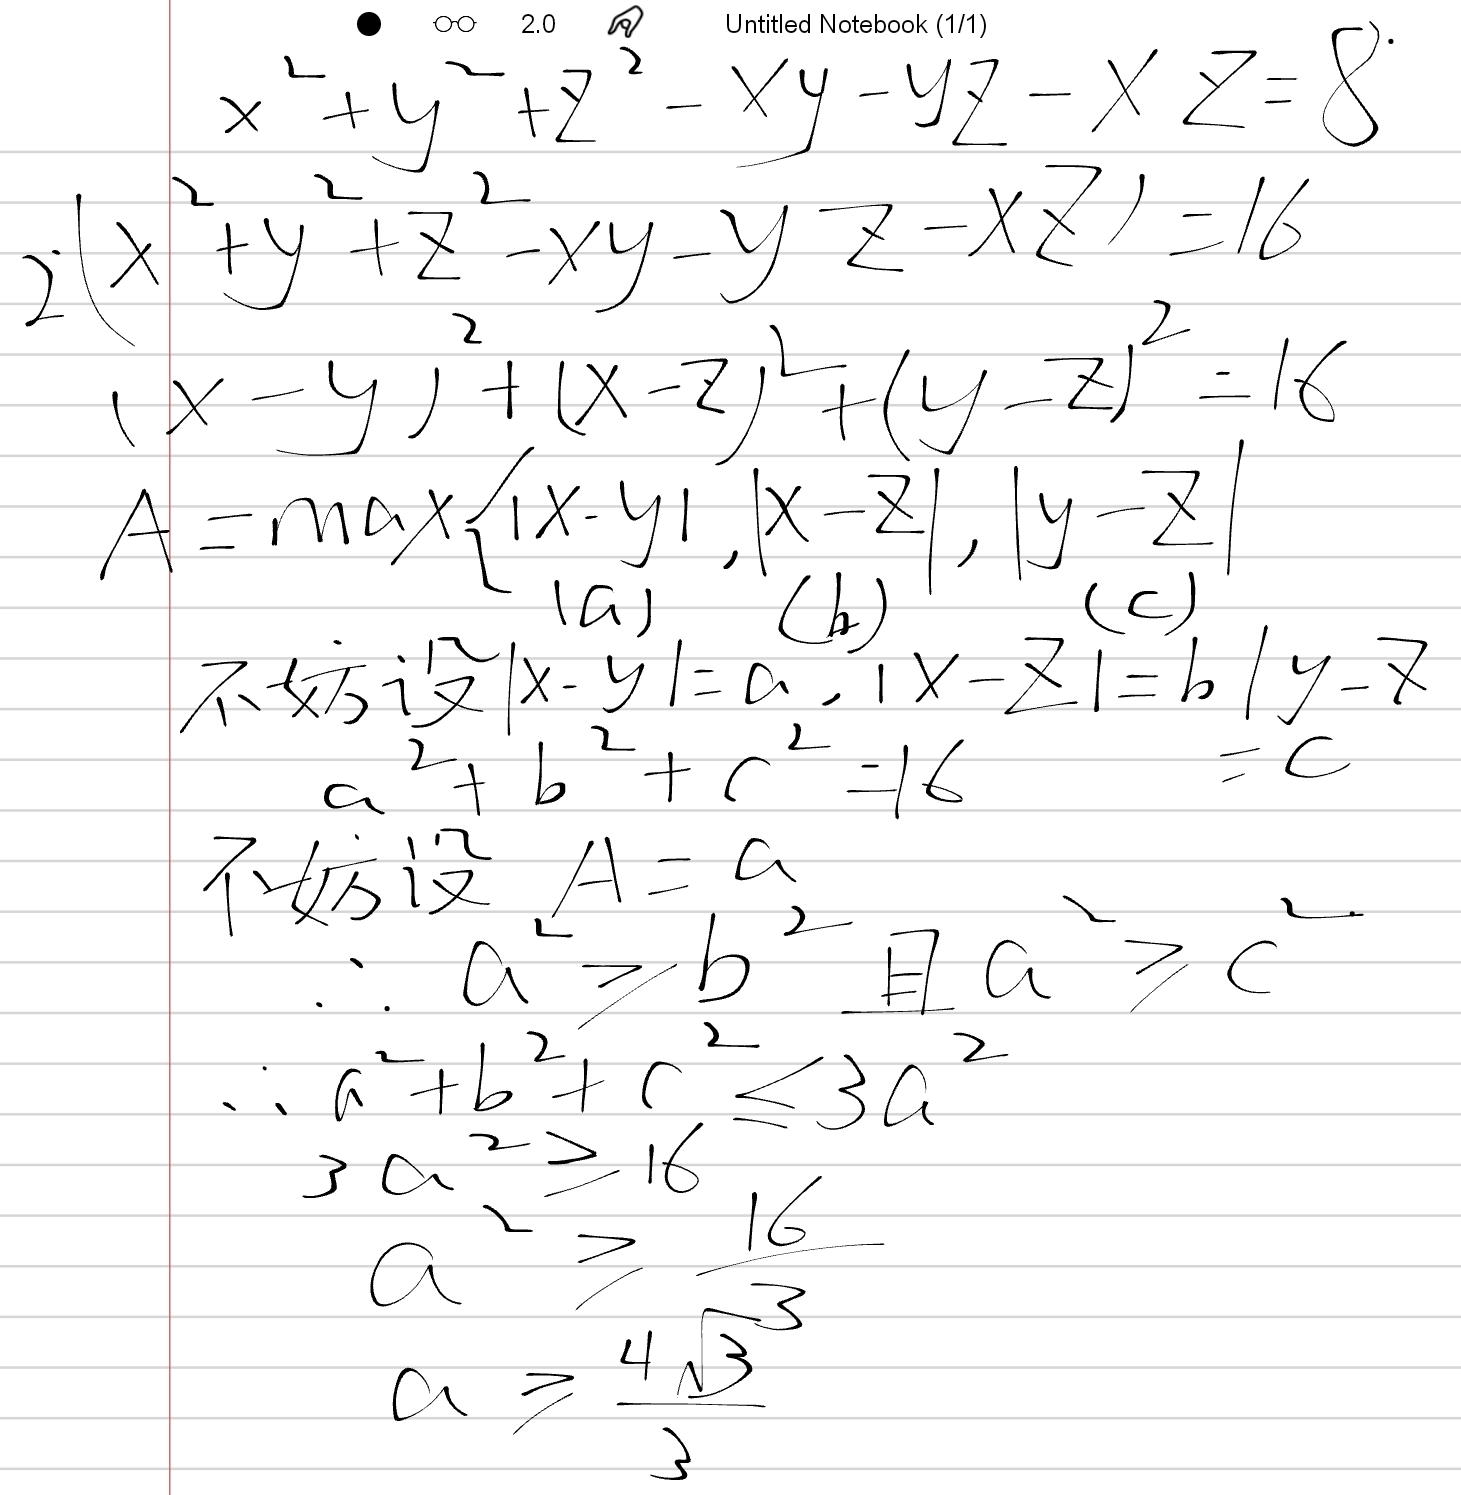 2.0 Untitled Notebook (1/1)
x²+y²+z²-xy-yz-xz=8
2(x²+y²+z²-xy-yz-xz)=16
(x-y)²+(x-z)²+(y-z)²=16
A=max{|x-y|,|x-z|,|y-z|
(a) (b) (c)
不妨设|x-y|=a,|x-z|=b|y-z
=c
a²+b²+c²=16
不妨设 A=a
∴ a²≥b² 且 a²≥c²
∴ a²+b²+c²≤3a²
3a²≥16
a²≥16/3
a≥4√3/3